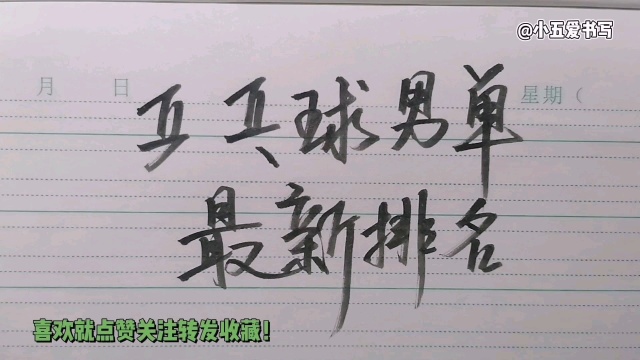 @小五爱书写
月 日 星期（
乒乓球男单
最新排名
喜欢就点赞关注转发收藏！